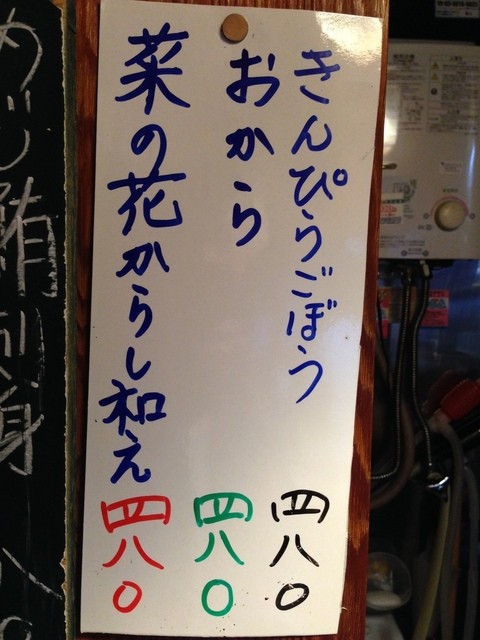 きんぴらごぼう 四八〇
おから 四八〇
菜の花からし和え 四八〇
めじ鮪刺身